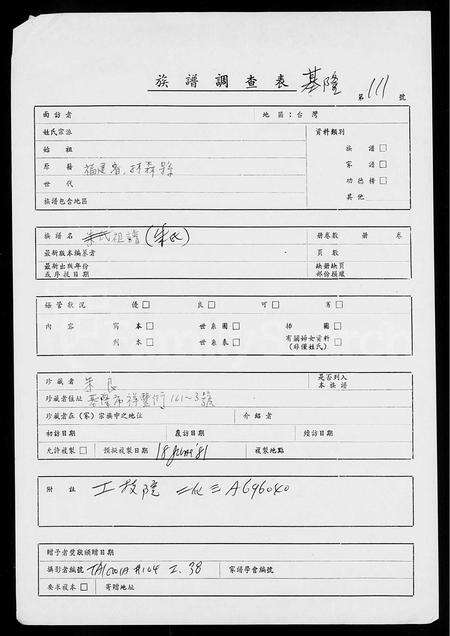 族譜調查表 基隆 第 111 號
面訪者 地區：台灣
姓氏宗派 資料類別
始祖 族譜 □
原籍 福建省，林森縣 家譜 □
世代 功德榜 □
族譜包含地區 其他
族譜名 朱氏祖譜 (朱氏) 册卷數 册 卷
最新版本編纂者 頁數
最新出版年份 缺册缺頁
或序跋日期 部份損壞
保管狀況 優 □ 良 □ 可 □ 有 □
內容 寫本 □ 世系圖 □ 插圖 □
刊本 □ 世系表 □ 有關婦女資料 □
(非僅姓氏)
珍藏者 朱 是否列入
本族譜
珍藏者住址 基隆市祥豐街 161~3號
珍藏者在(家)宗族中之地位 介紹者
初訪日期 覆訪日期 續訪日期
允許複製 □ 預擬複製日期 18 June '81 複製地點
附註 工技院 A696040
贈予者獎敵頒贈日期
攝影者編號 #104 I. 38 家譜學會編號
要求複本 □ 寄贈地址